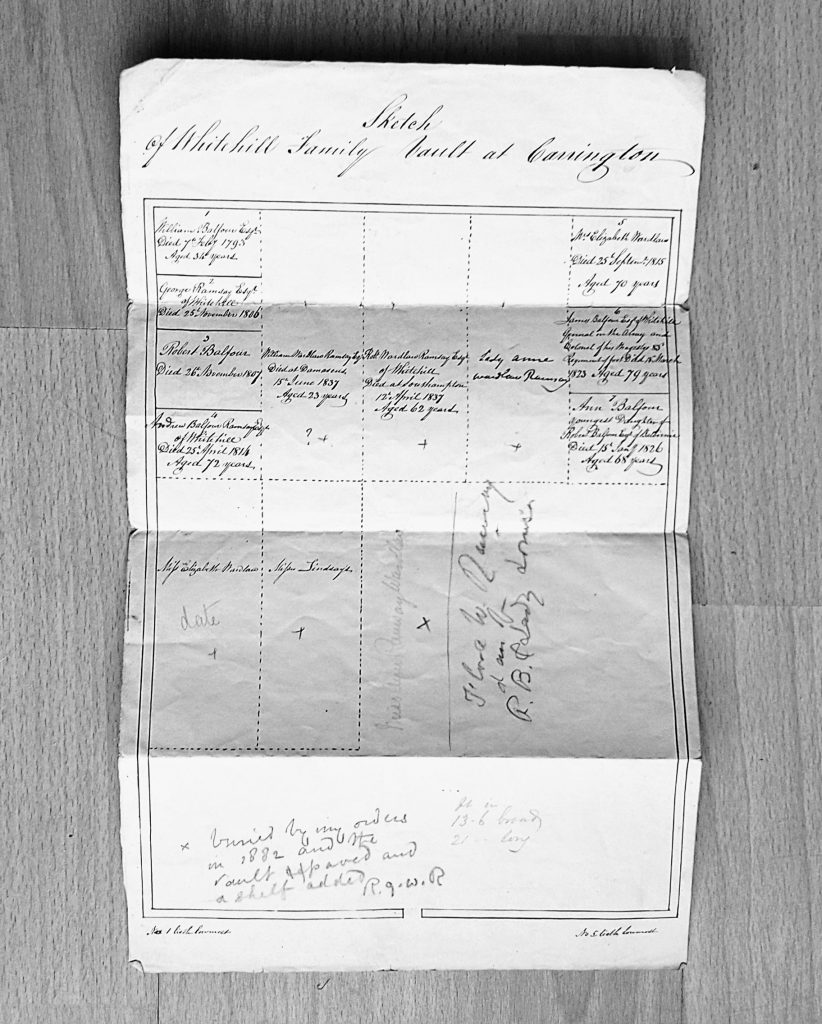 Sketch
Of Whitehill Family Vault at Carrington
1
William Balfour Esqr.
Died 7th Feby 1793
Aged 34 years
2
George Ramsay Esqr.
of Whitehill
Died 25 November 1806
3
Robert Balfour
Died 26 November 1807
4
Andrew Balfour Ramsay Esqr.
of Whitehill
Died 25 April 1814
Aged 72 years
William Wardlaw Ramsay Esqr
Died at Damascus
15 June 1837
Aged 23 years
? +
Robt. Wardlaw Ramsay Esqr
of Whitehill
Died at Southampton
12 April 1837
Aged 62 years
+
Lady Anne
Wardlaw Ramsay
+
5
Mrs Elizabeth Wardlaw
Died 25 Septemr. 1815
Aged 70 years
6
James Balfour Esqr of Whitehill
General in the Army and
Colonel of his Majestys 83
Regiment of foot Died 18 March
1823 Aged 79 years
7
Ann Balfour
youngest Daughter of
Robert Balfour Esqr of Balbirnie
Died 15 Jany 1826
Aged 68 years
Miss Elizabeth Wardlaw
date
+
Misses Lindsays
+
Ramsay Wardlaw
x
W. Ramsay
R. B. Lady Louisa
x buried by my orders
in 1882 and the
vault paved and
a shelf added
R. G. W. R
ft in
13-6 broad
21 - - long
Nos 1 lowmost
No 5 lowmost